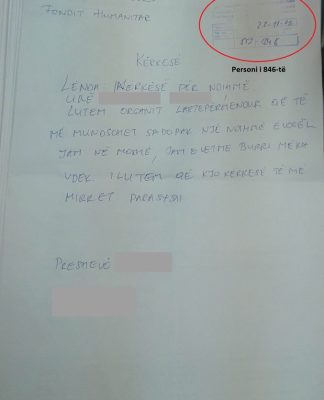 FONDIT HUMANITAR
22-11-12
Personi i 846-të
KËRKESË
LËNDA: KËRKESË PËR NDIHMË
UNË
LUTEM ORGANIT LARTEPERMENDUR QË TË
MË MUNDSOHET SADOPAK NJË NDIHMË
JAM NË MOSHË, JAM E VETME BURRI MË KA
VDEK I LUTEM QË KJO KËRKESË TË ME
MIRRET PARASYSH
PRESHEVË